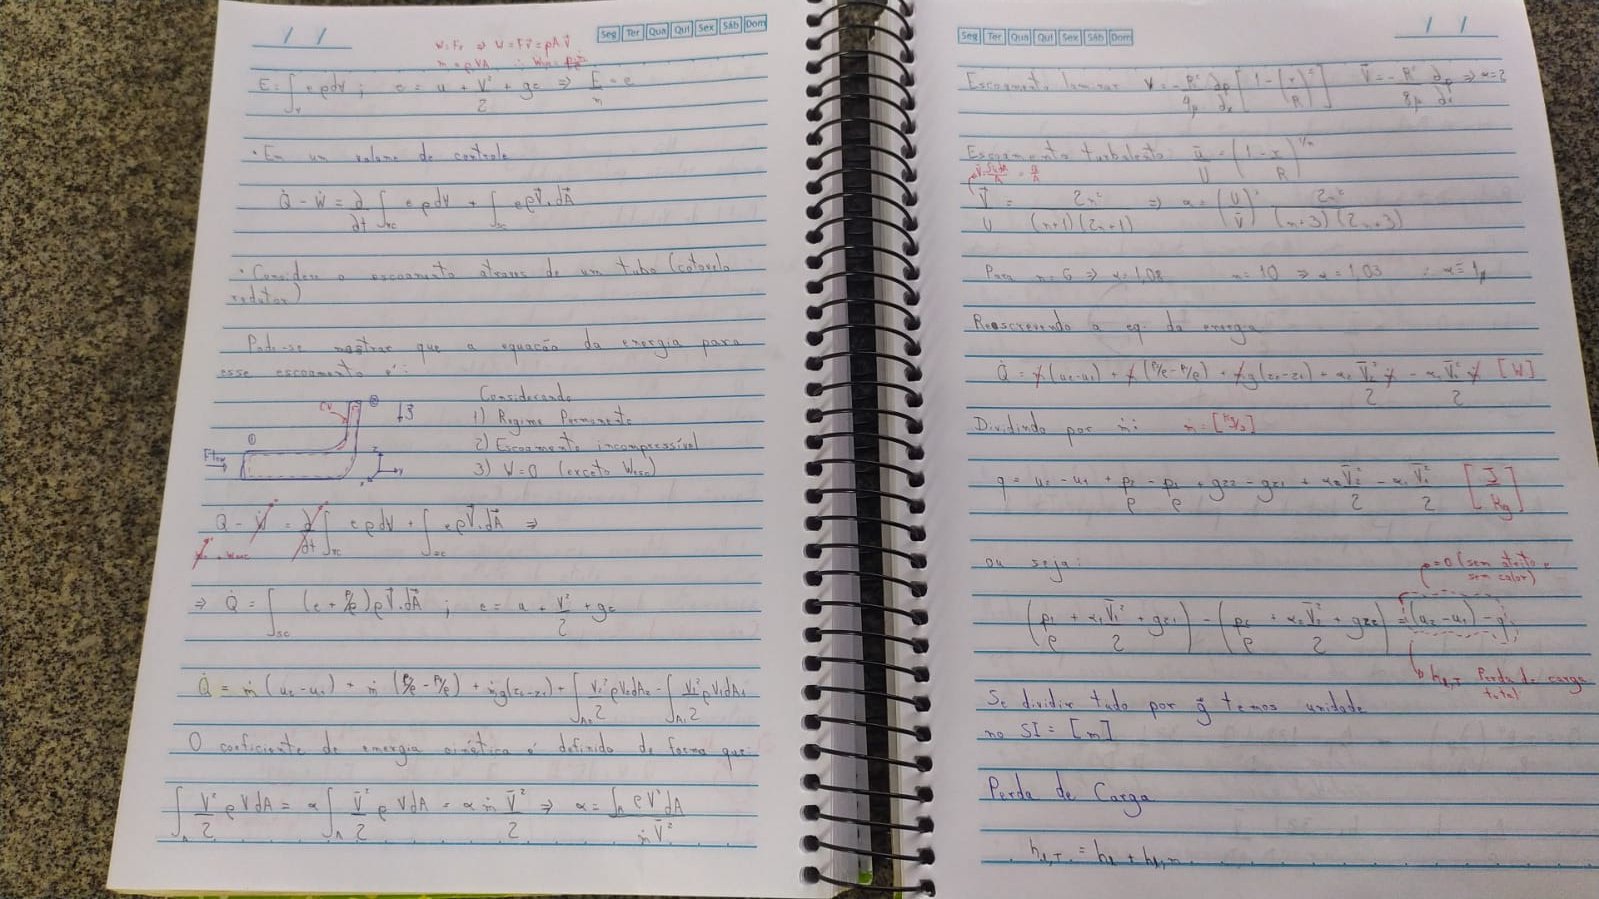 / /
Seg Ter Qua Qui Sex Sáb Dom
W = Fr ⇒ Ẇ = FV̄ = pAV̄
ṁ = ρVA ∴
E = ∫v eρdV ; e = u + V²/2 + gz ⇒ E/m = e
• Em um volume de controle
Q̇ - Ẇ = ∂/∂t ∫vc eρdV + ∫sc eρV⃗.dA⃗
• Considere o escoamento através de um tubo (cotovelo
redutor)
Pode-se mostrar que a equação da energia para
esse escoamento é:
Considerando
1) Regime Permanente
2) Escoamento incompressível
3) W=0 (exceto Wesc)
CV ② ↓g⃗
①
Flow
z
y
x
Q̇ - Ẇ = ∂/∂t ∫vc eρdV + ∫sc eρV⃗.dA⃗ ⇒
⇒ Q̇ = ∫sc (e + P/ρ)ρV⃗.dA⃗ ; e = u + V²/2 + gz
Q̇ = ṁ(u2-u1) + ṁ(P2/ρ - P1/ρ) + ṁg(z2-z1) + ∫A2 V2²/2 ρV2dA2 - ∫A1 V1²/2 ρV1dA1
O coeficiente de energia cinética é definido de forma que:
∫A V²/2 ρVdA = α∫A V̄²/2 ρVdA = αṁ V̄²/2 ⇒ α = ∫A ρV³dA / ṁV̄²
Seg Ter Qua Qui Sex Sáb Dom
/ /
Escoamento laminar V = -R²/4μ ∂p/∂x [1-(r/R)²] V̄ = -R²/8μ ∂p/∂x ⇒ α=2
Escoamento turbulento ū/U = (1-r/R)^1/n
V̄/U = 2n²/(n+1)(2n+1) ⇒ α = (U/V̄)³ 2n²/(n+3)(2n+3)
Para n=6 ⇒ α=1,08 n=10 ⇒ α=1,03 ∴ α≅1
Reescrevendo a eq. da energia
Q̇ = ṁ(u2-u1) + ṁ(P2/ρ - P1/ρ) + ṁg(z2-z1) + α2 V̄2²/2 ṁ - α1 V̄1²/2 ṁ [W]
Dividindo por ṁ: ṁ = [kg/s]
q = u2 - u1 + p2/ρ - p1/ρ + gz2 - gz1 + α2V̄2²/2 - α1V̄1²/2 [J/kg]
ou seja: =0 (sem atrito e
sem calor)
(p1/ρ + α1V̄1²/2 + gz1) - (p2/ρ + α2V̄2²/2 + gz2) = (u2-u1) - q
hl,T Perda de carga
total
Se dividir tudo por g⃗ temos unidade
no SI = [m]
Perda de Carga
hl,T = hl + hl,m